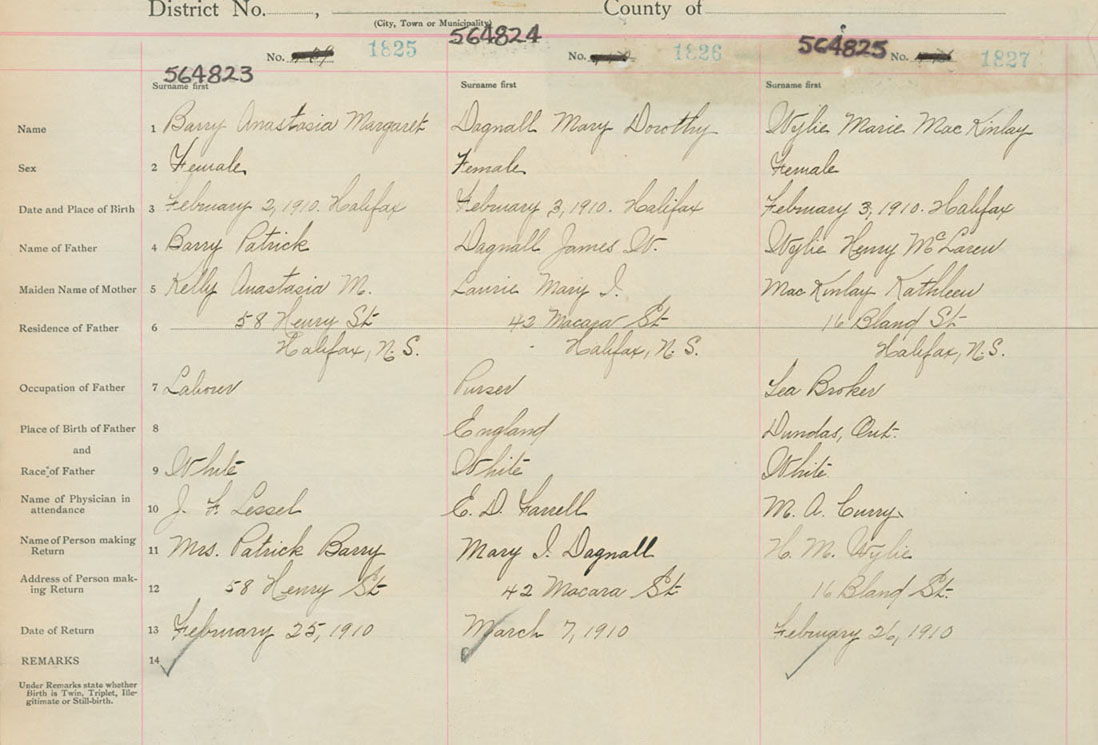 District No. , County of
(City, Town or Municipality)
564824
564825
No. 1825
No. 1826
No. 1827
564823
Surname first
Surname first
Surname first
Name 1 Barry Anastasia Margaret Dagnall Mary Dorothy Wylie Marie MacKinlay
Sex 2 Female Female Female
Date and Place of Birth 3 February 2, 1910. Halifax February 3, 1910. Halifax February 3, 1910. Halifax
Name of Father 4 Barry Patrick Dagnall James W. Wylie Henry McLaren
Maiden Name of Mother 5 Kelly Anastasia M. Laurie Mary I. MacKinlay Kathleen
Residence of Father 6 58 Henry St 42 Macara St 16 Bland St
Halifax, N.S. Halifax, N.S. Halifax, N.S.
Occupation of Father 7 Labourer Purser Tea Broker
Place of Birth of Father 8 England Dundas, Ont.
and
Race of Father 9 White White White
Name of Physician in
attendance 10 J. F. Lessel E. D. Farrell M. A. Curry
Name of Person making
Return 11 Mrs. Patrick Barry Mary I. Dagnall H. M. Wylie
Address of Person mak-
ing Return 12 58 Henry St 42 Macara St 16 Bland St.
Date of Return 13 February 25, 1910 March 7, 1910 February 26, 1910
REMARKS 14
Under Remarks state whether
Birth is Twin, Triplet, Ille-
gitimate or Still-birth.